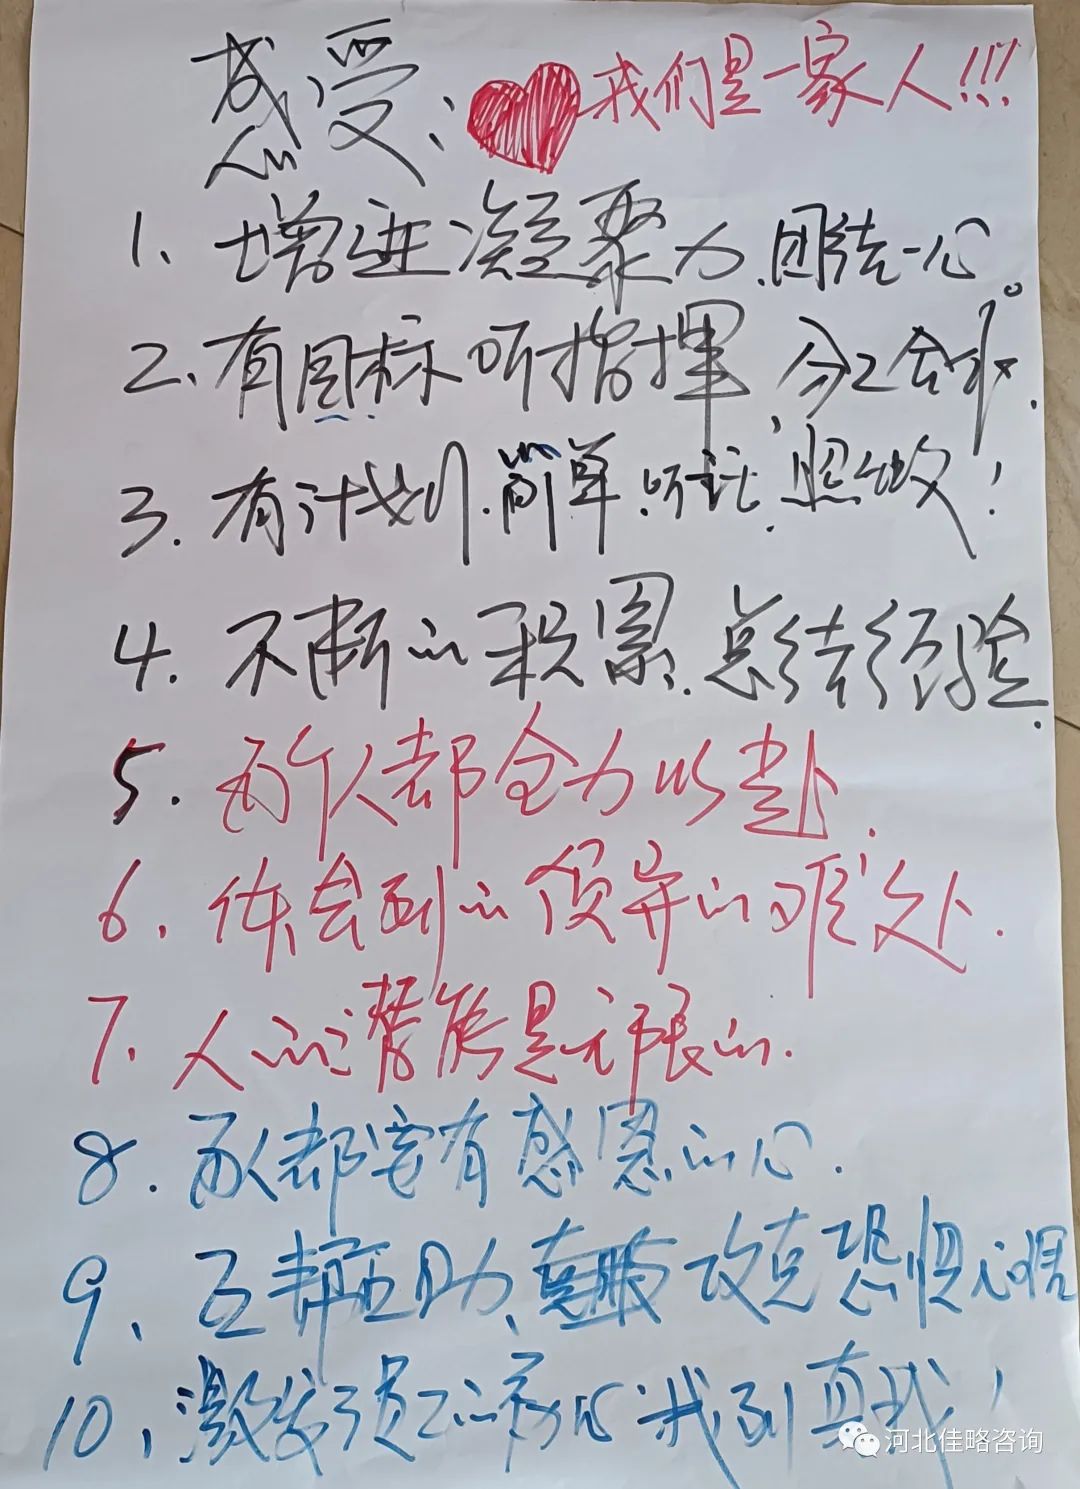 感受：我们是一家人!!!
1、增进凝聚力、团结一心。
2、有目标听指挥，分工合作.
3.有计划.简单.听话.照做！
4.不断的积累.总结经验.
5.每个人都全力以赴.
6.体会到的领导的难处.
7.人的潜能是无限的.
8.每人都要有感恩的心.
9、互帮互助、攻克恐惧心
10、激发 己的 心 找到真我！
河北佳略咨询